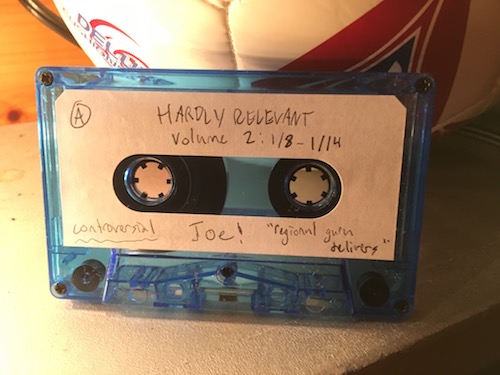 DELU
A
HARDLY RELEVANT
Volume 2: 1/8 - 1/14
controversial Joe! "regional guru
delivers"